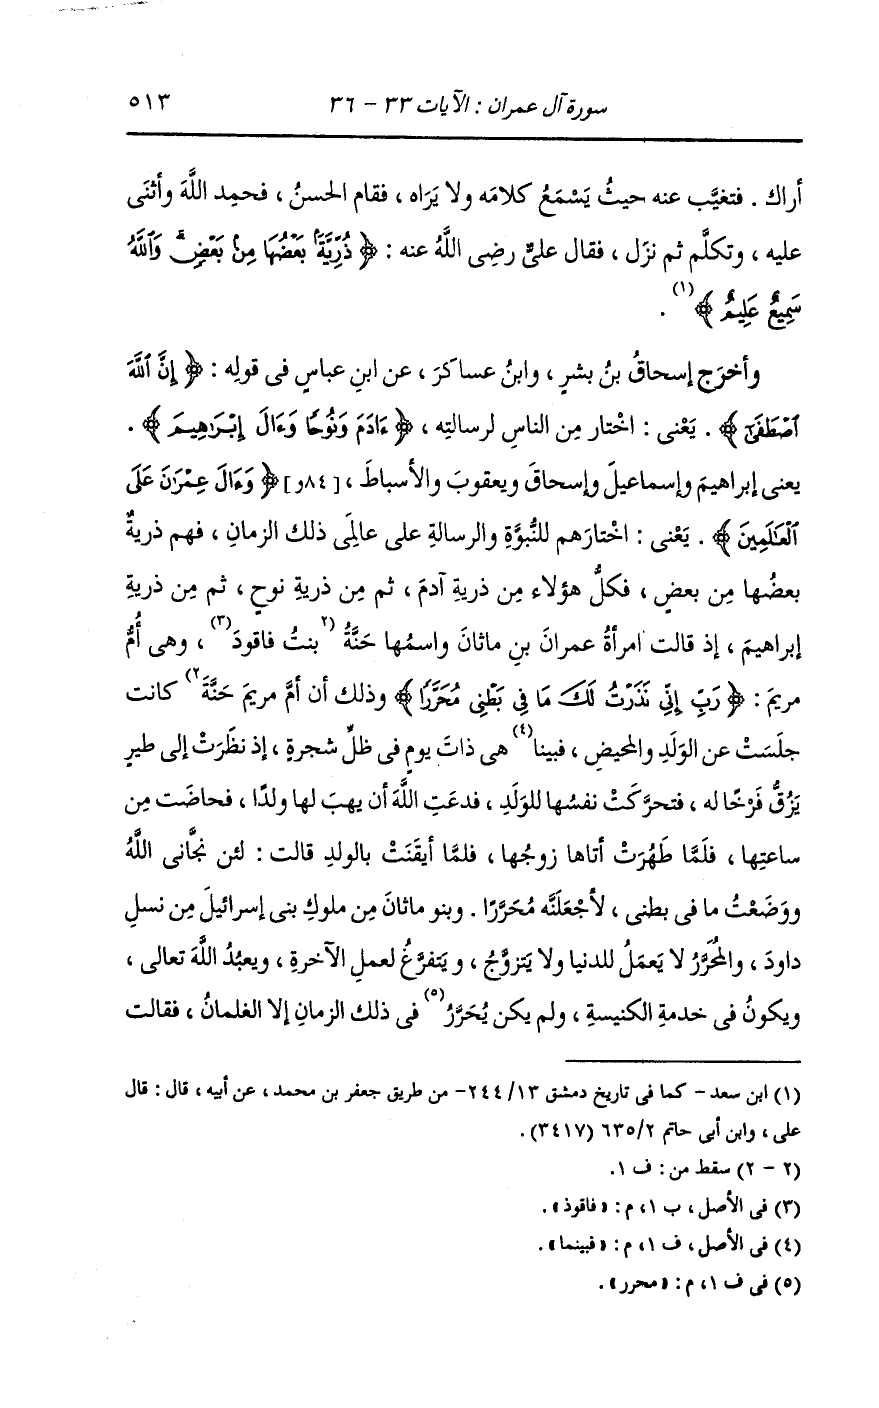 سورة آل عمران : الآيات ٣٣ - ٣٦ ٥١٣
أراك . فتغيَّب عنه حيثُ يَسْمَعُ كلامَه ولا يَرَاه ، فقام الحسنُ ، فحمِد اللَّهَ وأثنَى
عليه ، وتكلَّم ثم نزَل ، فقال علىٌّ رضِى اللَّهُ عنه : ﴿ ذُرِّيَّةَۢ بَعْضُهَا مِنۢ بَعْضٍۗ وَٱللَّهُ
سَمِيعٌ عَلِيمٌ ﴾(١) .
وأخرَج إسحاقُ بنُ بشرٍ ، وابنُ عساكرَ ، عن ابنِ عباسٍ فى قولِه : ﴿ إِنَّ ٱللَّهَ
ٱصْطَفَىٰٓ ﴾ . يَعْنى : اخْتار مِن الناسِ لرسالتِه ، ﴿ ءَادَمَ وَنُوحًا وَءَالَ إِبْرَٰهِيمَ ﴾ .
يعنى إبراهيمَ وإسماعيلَ وإسحاقَ ويعقوبَ والأسباطَ ، [٨٤و] ﴿ وَءَالَ عِمْرَٰنَ عَلَى
ٱلْعَٰلَمِينَ ﴾ . يَعْنى : اخْتارَهم للنُّبوَّةِ والرسالةِ على عالمَى ذلك الزمانِ ، فهم ذريةٌ
بعضُها مِن بعضٍ ، فكلُّ هؤلاء مِن ذريةِ آدمَ ، ثم مِن ذريةِ نوحٍ ، ثم مِن ذريةِ
إبراهيمَ ، إذ قالت امرأةُ عمرانَ بنِ ماثانَ واسمُها حَنَّةُ (٢بنتُ فاقودَ(٣) ، وهى أُمُّ
مريمَ : ﴿ رَبِّ إِنِّى نَذَرْتُ لَكَ مَا فِى بَطْنِى مُحَرَّرًا ﴾ وذلك أن أمَّ مريمَ حَنَّةَ٢) كانت
جلَسَتْ عن الوَلَدِ والمحيضِ ، فبينا(٤) هى ذاتَ يومٍ فى ظلِّ شجرةٍ ، إذ نظَرَتْ إلى طيرٍ
يَزُقُّ فَرْخًا له ، فتحرَّكَتْ نفسُها للوَلَدِ ، فدعَتِ اللَّهَ أن يهبَ لها ولدًا ، فحاضَت مِن
ساعتِها ، فلَمَّا طَهُرَتْ أتاها زوجُها ، فلمَّا أيقَنَتْ بالولدِ قالت : لئن نجَّانى اللَّهُ
ووَضَعْتُ ما فى بطنى ، لأجْعَلَنَّه مُحَرَّرًا . وبنو ماثانَ مِن ملوكِ بنى إسرائيلَ مِن نسلِ
داودَ ، والمُحَرَّرُ لا يَعمَلُ للدنيا ولا يَتزوَّجُ ، ويَتفرَّغُ لعملِ الآخرةِ ، ويعبُدُ اللَّهَ تعالى ،
ويكونُ فى خدمةِ الكنيسةِ ، ولم يكن يُحَرَّرُ(٥) فى ذلك الزمانِ إلا الغلمانُ ، فقالت
(١) ابن سعد - كما فى تاريخ دمشق ١٣/ ٢٤٤ - من طريق جعفر بن محمد ، عن أبيه ، قال : قال
على ، وابن أبى حاتم ٦٣٥/٢ (٣٤١٧) .
(٢ - ٢) سقط من : ف ١.
(٣) فى الأصل ، ب ١، م : «فاقوذ» .
(٤) فى الأصل ، ف ١، م : «فبينما» .
(٥) فى ف ١، م : «محرر» .